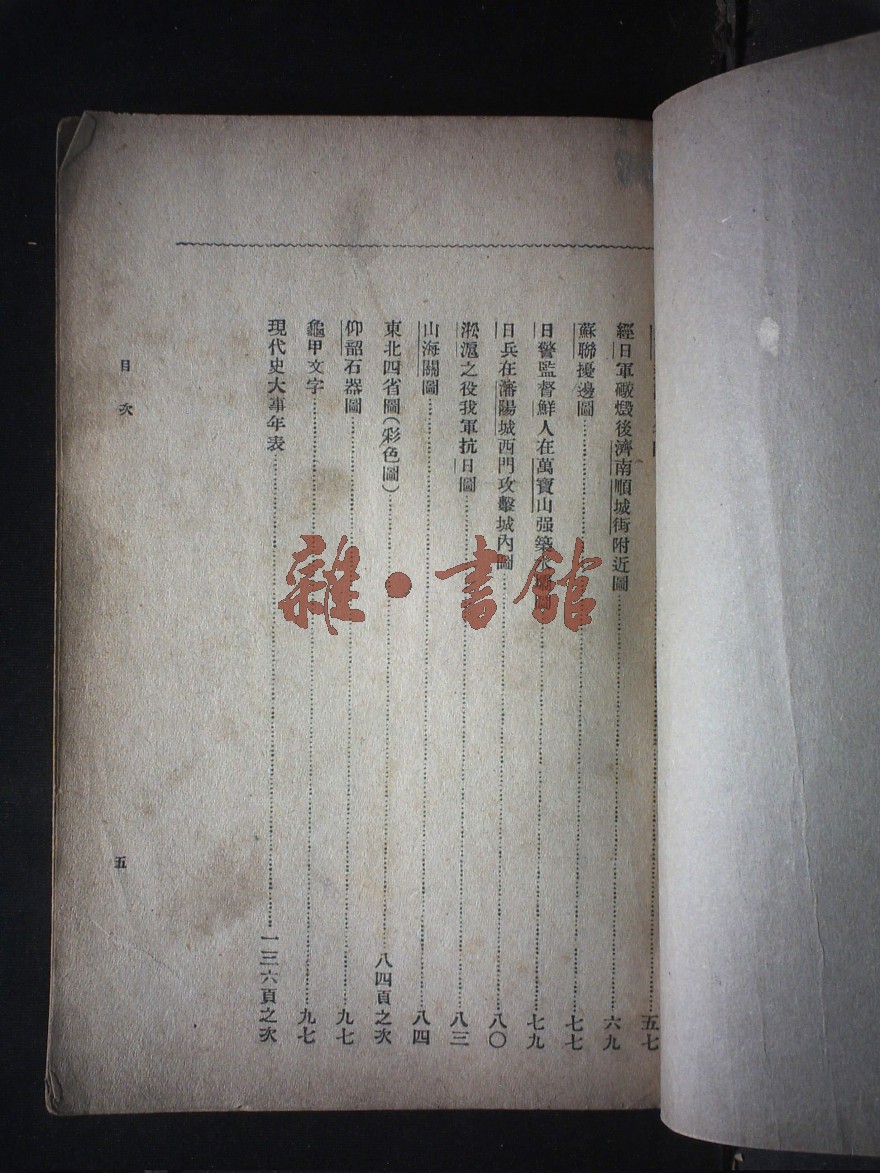 五七
經日軍礮燬後濟南順城街附近圖……六九
蘇聯擾邊圖……七七
日警監督鮮人在萬寶山强築……七九
日兵在瀋陽城西門攻擊城內圖……八〇
淞滬之役我軍抗日圖……八三
山海關圖……八四
東北四省圖(彩色圖)……八四頁之次
仰韶石器圖……九七
龜甲文字……九七
現代史大事年表……一三六頁之次
目次
五
雜·書館